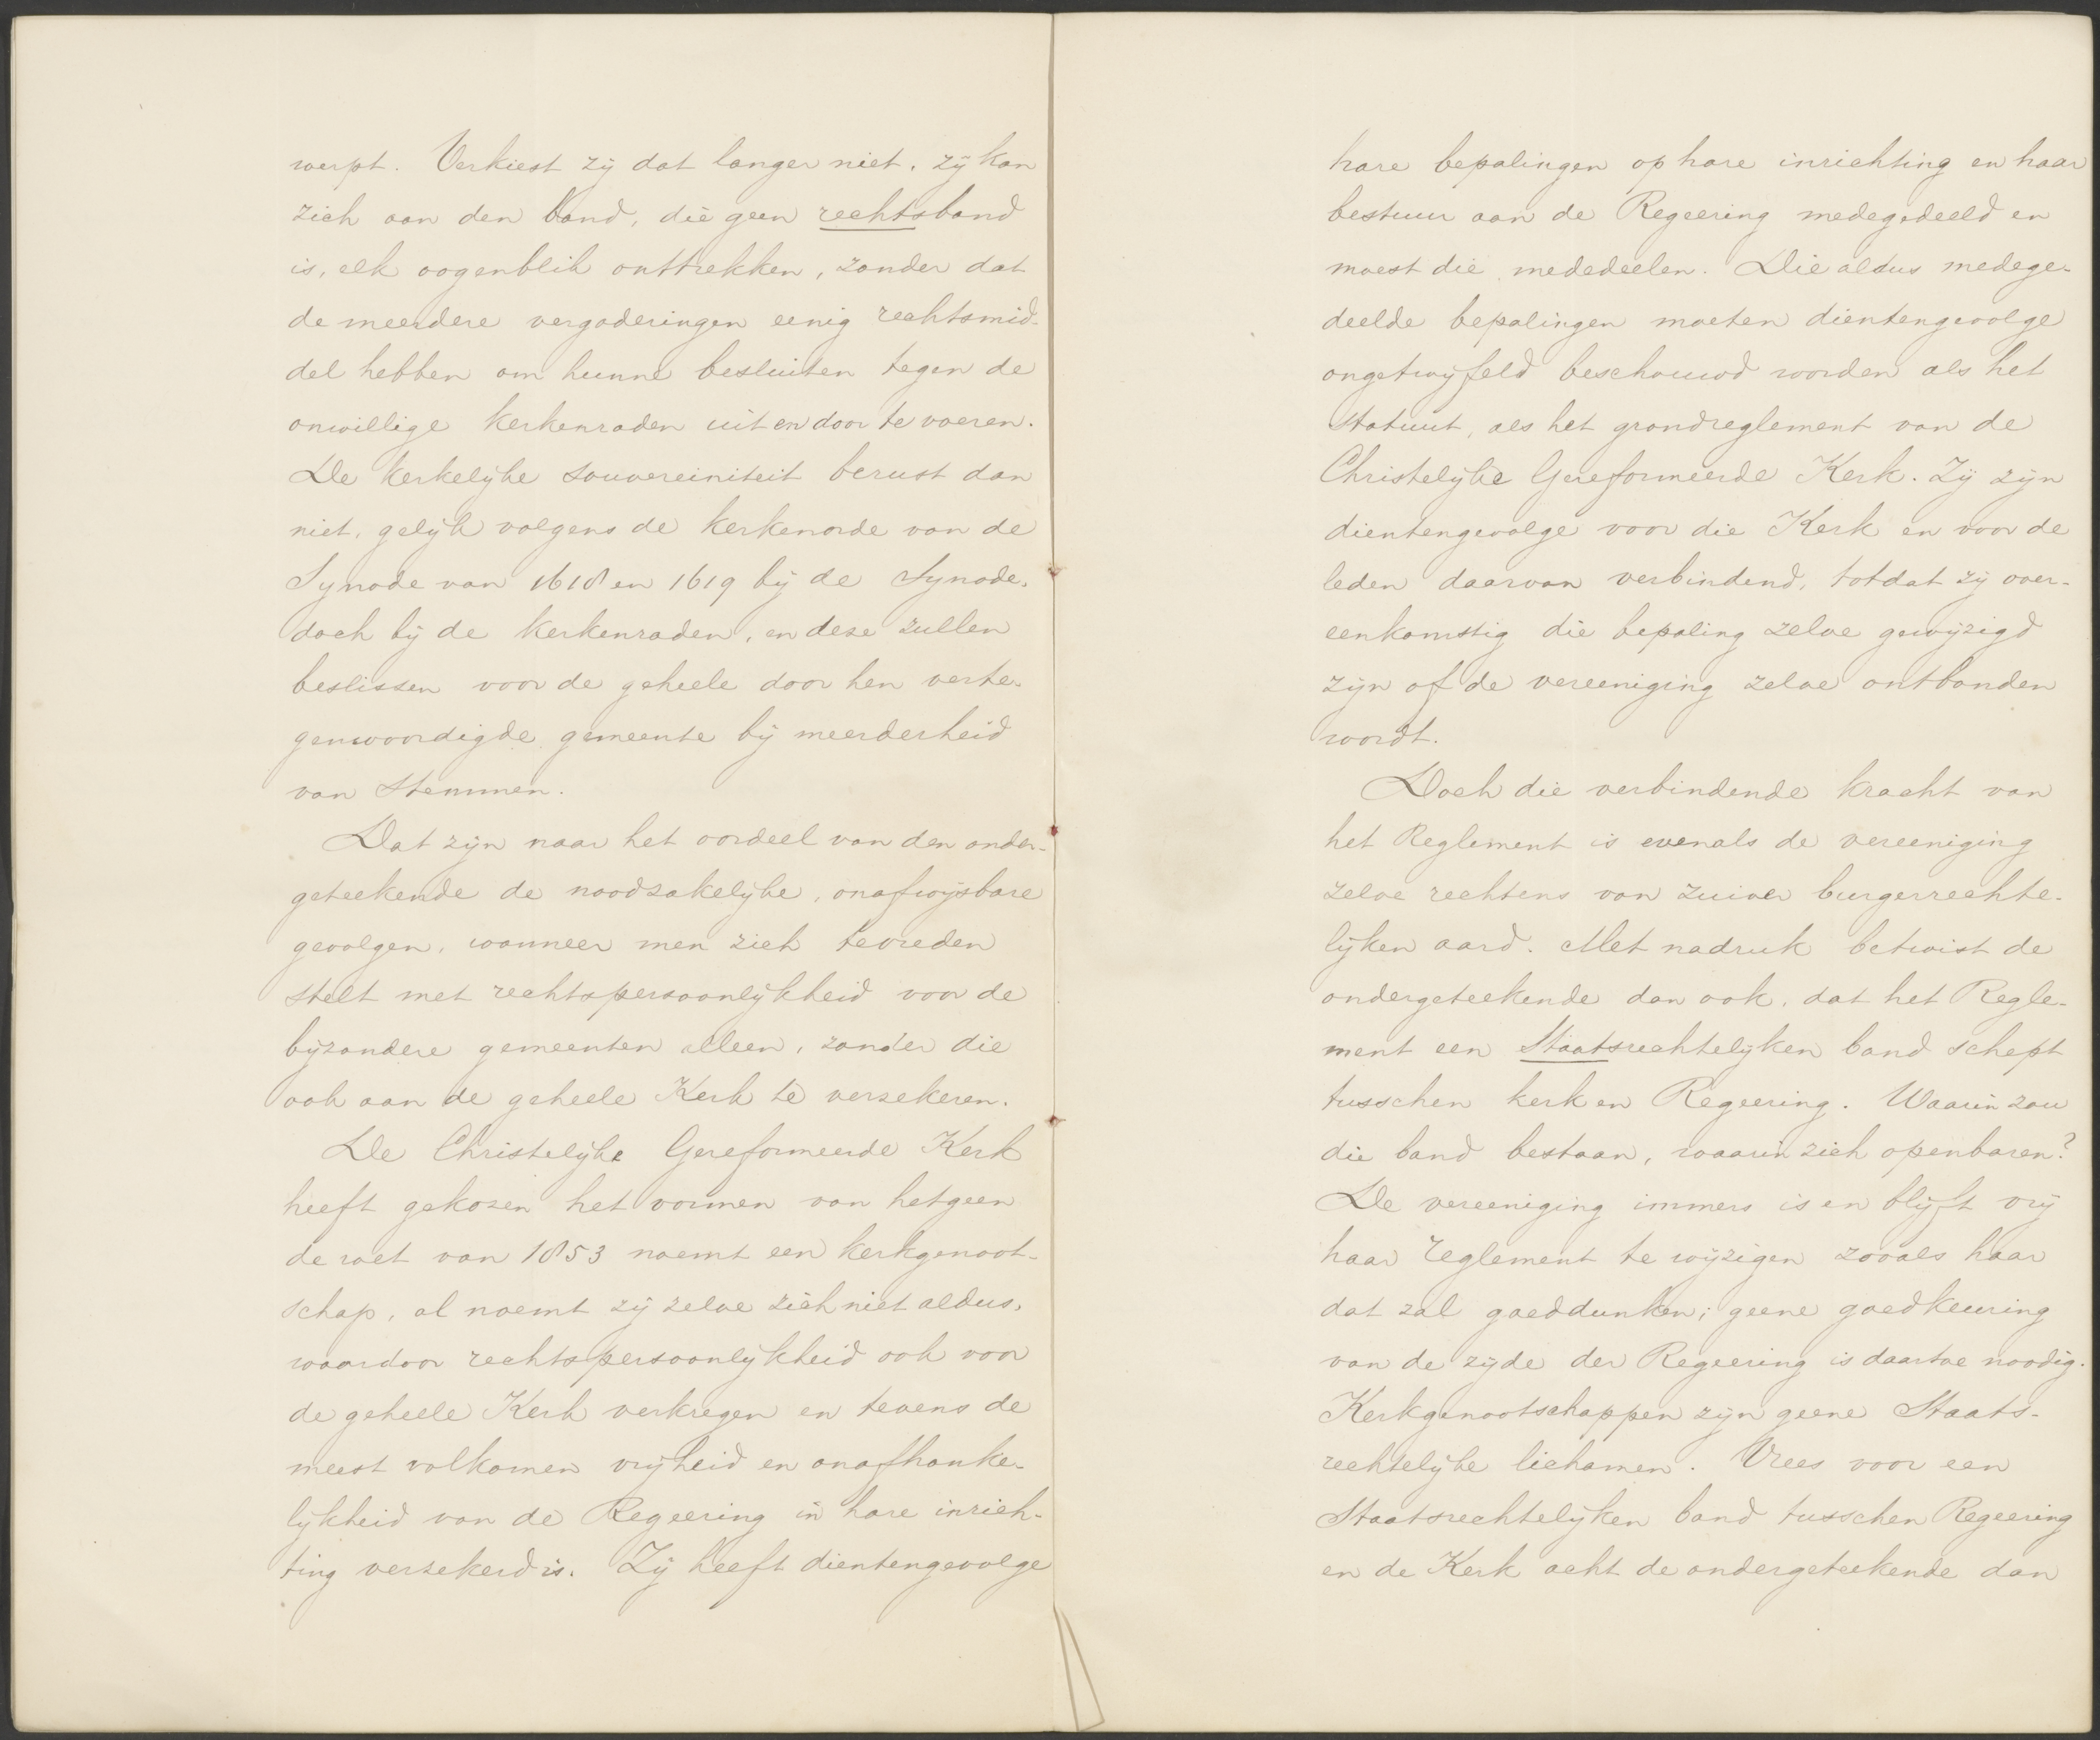 werpt. Verkiest zij dat langer niet, zij kan
zich aan den band, die geen rechtsband
is, elk oogenblik onttrekken, zonder dat
de meerdere vergaderingen eenig rechtsmid-
del hebben om hunne besluiten tegen de
onwillige kerkenraden uit en door te voeren.
De kerkelijke souvereiniteit berust dan
niet, gelijk volgens de kerkenorde van de
Synode van 1618 en 1619 bij de Synode,
doch bij de kerkenraden, en deze zullen
beslissen voor de geheele door hen verte-
genwoordigde gemeente bij meerderheid
van stemmen.
Dat zijn naar het oordeel van den onder-
geteekende de noodzakelijke, onafwijsbare
gevolgen, wanneer men zich tevreden
stelt met rechtspersoonlijkheid voor de
bijzondere gemeenten alleen, zonder die
ook aan de geheele Kerk te verzekeren.
De Christelijke Gereformeerde Kerk
heeft gekozen het vormen van hetgeen
de wet van 1853 noemt een kerkgenoot-
schap, al noemt zij zelve zich niet aldus,
waardoor rechtspersoonlijkheid ook voor
de geheele Kerk verkregen en tevens de
meest volkomen vrijheid en onafhanke-
lijkheid van de Regeering in hare inrich-
ting verzekerd is. Zij heeft dientengevolge
hare bepalingen op hare inrichting en haar
bestuur aan de Regeering medegedeeld en
moest die mededeelen. Die aldus medege-
deelde bepalingen moeten dientengevolge
ongetwijfeld beschouwd worden als het
Statuut, als het grondreglement van de
Christelijke Gereformeerde Kerk. Zij zijn
dientengevolge voor die Kerk en voor de
leden daarvan verbindend, totdat zij over-
eenkomstig die bepaling zelve gewijzigd
zijn of de vereeniging zelve ontbonden
wordt.
Doch die verbindende kracht van
het Reglement is evenals de vereeniging
zelve rechtens van zuiver burgerrechte-
lijken aard. Met nadruk betwist de
ondergeteekende dan ook, dat het Regle-
ment een Staatsrechtelijken band schept
tusschen kerk en Regeering. Waarin zou
die band bestaan, waarin zich openbaren?
De vereeniging immers is en blijft vrij
haar reglement te wijzigen zooals haar
dat zal goeddunken; geene goedkeuring
van de zijde der Regeering is daartoe noodig.
Kerkgenootschappen zijn geene Staats-
rechtelijke lichamen. Vrees voor een
Staatsrechtelijken band tusschen Regeering
en de Kerk acht de ondergeteekende dan